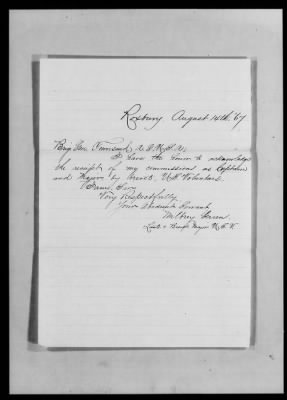 Roxbury August 14th. 67
Brig Gen Townsend
I have the honor to acknowledge
the receipt of my commissions as Captain
and Major by brevet, US Volunteers
I am, Sir,
Very Respectfully
Your Obedient Servant